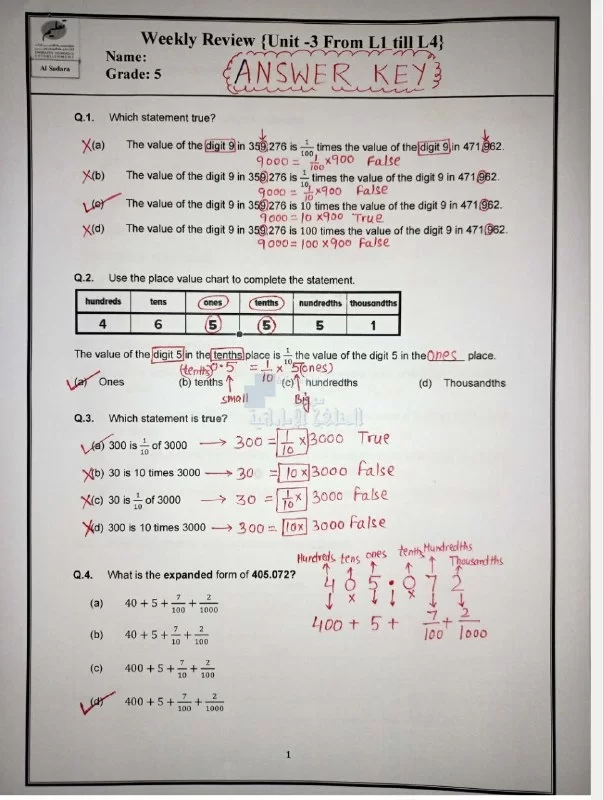 Weekly Review {Unit -3 From L1 till L4}
Name:
Al Sedara
Grade: 5
ANSWER KEY
Q.1. Which statement true?
X(a) The value of the digit 9 in 359,276 is 1/100 times the value of the digit 9 in 471,962.
9000 = 1/100 x900 False
X(b) The value of the digit 9 in 359,276 is 1/10 times the value of the digit 9 in 471,962.
9000 = 1/10 x900 False
(c) The value of the digit 9 in 359,276 is 10 times the value of the digit 9 in 471,962.
9000 = 10 x900 True
X(d) The value of the digit 9 in 359,276 is 100 times the value of the digit 9 in 471,962.
9000 = 100 x 900 False
Q.2. Use the place value chart to complete the statement.
hundreds tens ones tenths hundredths thousandths
4 6 5 5 5 1
The value of the digit 5 in the tenths place is 1/10 the value of the digit 5 in the Ones place.
(tenths) 0.5 = 1/10 x 5 (ones)
(a) Ones (b) tenths (c) hundredths (d) Thousandths
small Big
المناهج الإماراتية
Q.3. Which statement is true?
(a) 300 is 1/10 of 3000 → 300 = 1/10 x 3000 True
X(b) 30 is 10 times 3000 → 30 = 10 x 3000 False
X(c) 30 is 1/10 of 3000 → 30 = 1/10 x 3000 False
X(d) 300 is 10 times 3000 → 300 = 10x 3000 False
Hundreds tens ones tenths Hundredths Thousandths
Q.4. What is the expanded form of 405.072?
4 0 5 . 0 7 2
x x
(a) 40 + 5 + 7/100 + 2/1000
400 + 5 + 7/100 + 2/1000
(b) 40 + 5 + 7/10 + 2/100
(c) 400 + 5 + 7/10 + 2/100
(d) 400 + 5 + 7/100 + 2/1000
1